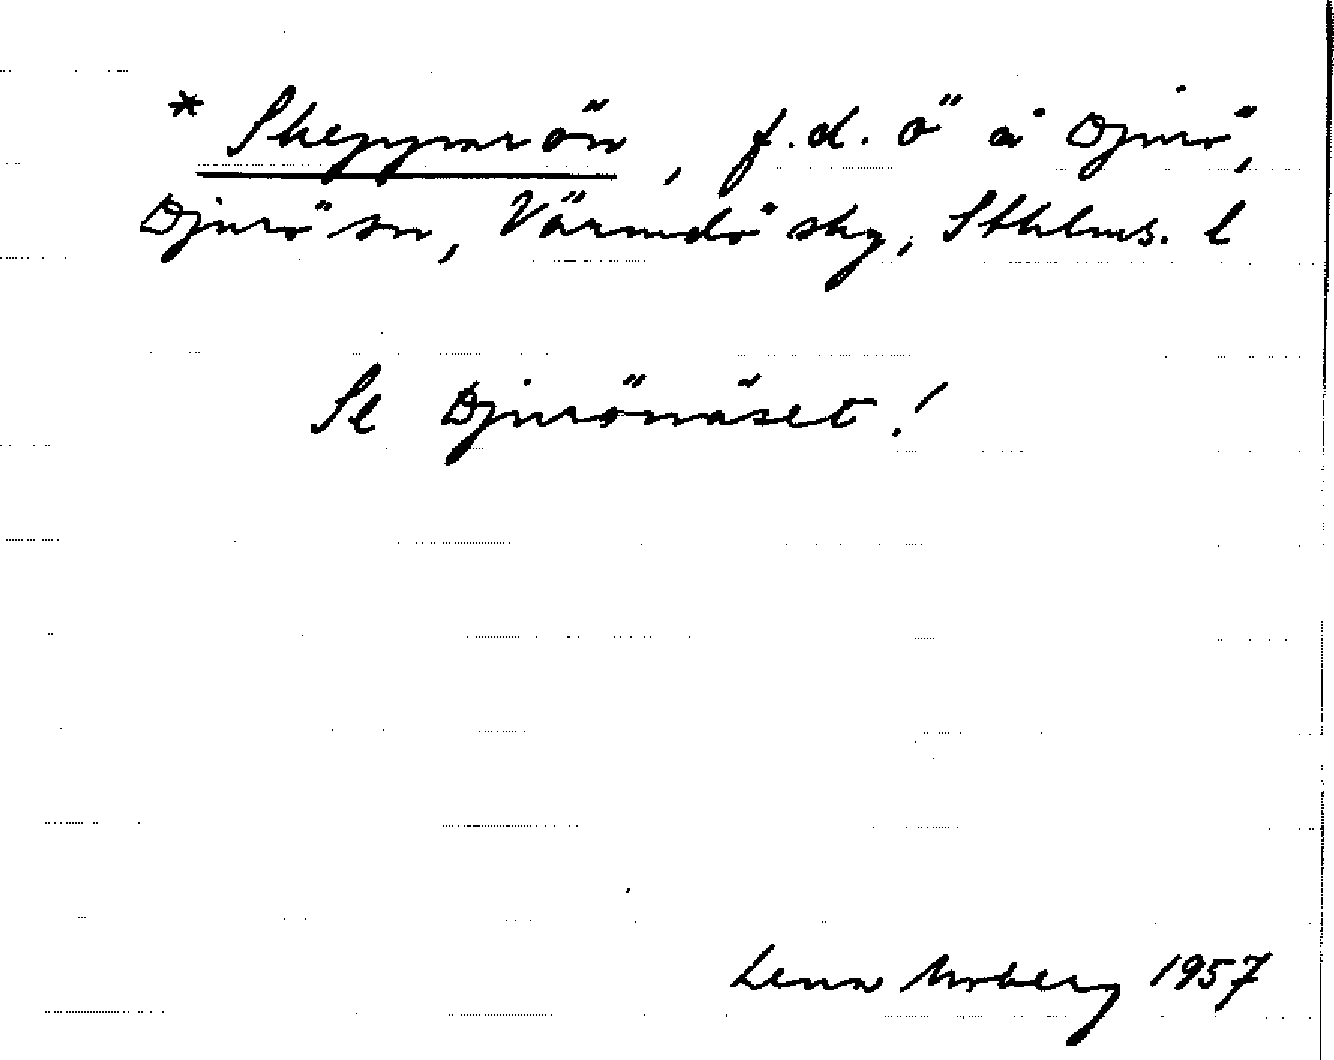 * Skepparön, f.d. ö å Djurö,
Djurö sn, Värmdö sky, Sthlms. l
Se Djurönäset!
Lena Moberg 1957